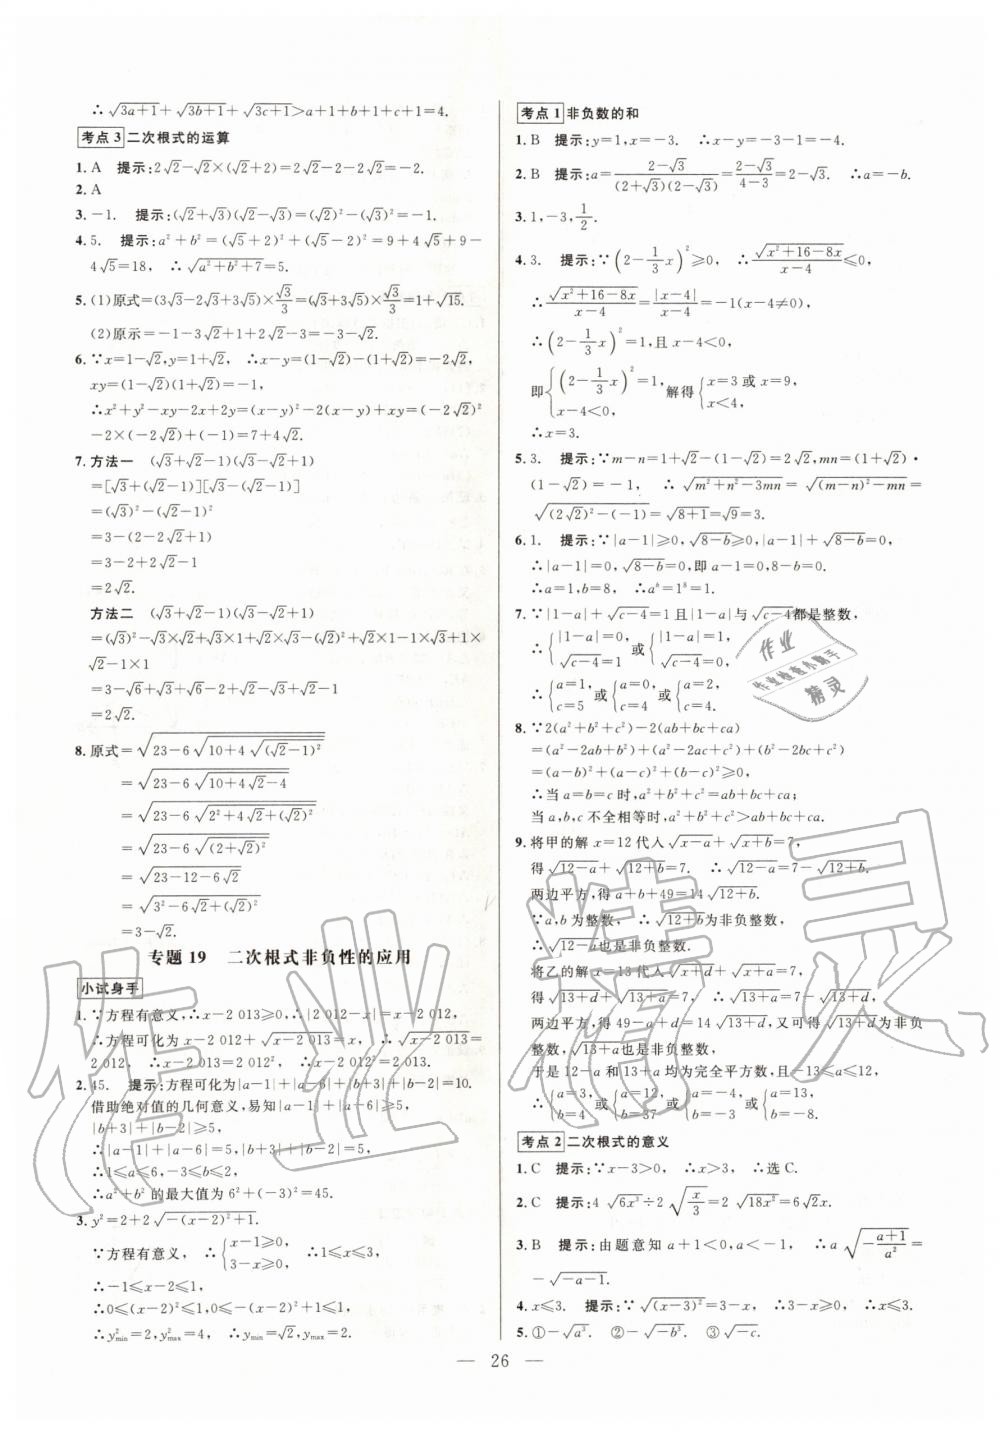 ∴√(3a+1)+√(3b+1)+√(3c+1)>a+1+b+1+c+1=4.
考点3 二次根式的运算
1. A 提示:2√2-√2×(√2+2)=2√2-2-2√2=-2.
2. A
3. -1. 提示:(√2+√3)(√2-√3)=(√2)²-(√3)²=-1.
4. 5. 提示:a²+b²=(√5+2)²+(√5-2)²=9+4√5+9-
4√5=18, ∴√(a²+b²+7)=5.
5. (1)原式=(3√3-2√3+3√5)×√3/3=(√3+3√5)×√3/3=1+√15.
(2)原示=-1-3√2+1+2√2-3=-√2-3.
6. ∵x=1-√2,y=1+√2, ∴x-y=(1-√2)-(1+√2)=-2√2,
xy=(1-√2)(1+√2)=-1,
∴x²+y²-xy-2x+2y=(x-y)²-2(x-y)+xy=(-2√2)²
-2×(-2√2)+(-1)=7+4√2.
7. 方法一 (√3+√2-1)(√3-√2+1)
=[√3+(√2-1)][√3-(√2-1)]
=(√3)²-(√2-1)²
=3-(2-2√2+1)
=3-2+2√2-1
=2√2.
方法二 (√3+√2-1)(√3-√2+1)
=(√3)²-√3×√2+√3×1+√2×√3-(√2)²+√2×1-1×√3+1×
√2-1×1
=3-√6+√3+√6-2+√2-√3+√2-1
=2√2.
8. 原式=√(23-6√(10+4√((√2-1)²)))
=√(23-6√(10+4√2-4))
=√(23-6√(2²+4√2+(√2)²))
=√(23-6√((2+√2)²))
=√(23-12-6√2)
=√(3²-6√2+(√2)²)
=3-√2.
专题19 二次根式非负性的应用
小试身手
1. ∵方程有意义,∴x-2 013≥0,∴|2 012-x|=x-2 012,
∴方程可化为x-2 012+√(x-2 013)=x, ∴√(x-2 013)=
2 012, ∴x-2 013=2 012², ∴x-2 012²=2 013.
2. 45. 提示:方程可化为|a-1|+|a-6|+|b+3|+|b-2|=10.
借助绝对值的几何意义,易知|a-1|+|a-6|≥5,
|b+3|+|b-2|≥5,
∴|a-1|+|a-6|=5,|b+3|+|b-2|=5,
∴1≤a≤6,-3≤b≤2,
∴a²+b²的最大值为6²+(-3)²=45.
3. y²=2+2√(-(x-2)²+1).
∵方程有意义, ∴{x-1≥0, 3-x≥0. ∴1≤x≤3,
∴-1≤x-2≤1,
∴0≤(x-2)²≤1,0≤-(x-2)²+1≤1,
∴y²min=2,y²max=4, ∴ymin=√2,ymax=2.
考点1 非负数的和
1. B 提示:y=1,x=-3. ∴x-y=-3-1=-4.
2. B 提示:a=(2-√3)/((2+√3)(2-√3))=(2-√3)/(4-3)=2-√3. ∴a=-b.
3. 1,-3,1/2.
4. 3. 提示:∵(2-1/3x)²≥0, ∴√(x²+16-8x)/(x-4)≤0,
∴√(x²+16-8x)/(x-4)=|x-4|/(x-4)=-1(x-4≠0),
∴(2-1/3x)²=1,且x-4<0,
即{(2-1/3x)²=1, x-4<0, 解得{x=3或x=9, x<4,
∴x=3.
5. 3. 提示:∵m-n=1+√2-(1-√2)=2√2,mn=(1+√2)·
(1-√2)=-1, ∴√(m²+n²-3mn)=√((m-n)²-mn)=
√((2√2)²-(-1))=√(8+1)=√9=3.
6. 1. 提示:∵|a-1|≥0,√(8-b)≥0,|a-1|+√(8-b)=0,
∴|a-1|=0,√(8-b)=0,即a-1=0,8-b=0.
∴a=1,b=8, ∴aᵇ=1⁸=1.
7. ∵|1-a|+√(c-4)=1且|1-a|与√(c-4)都是整数,
∴{|1-a|=0, √(c-4)=1 或{|1-a|=1, √(c-4)=0,
∴{a=1, c=5 或{a=0, c=4 或{a=2, c=4.
8. ∵2(a²+b²+c²)-2(ab+bc+ca)
=(a²-2ab+b²)+(a²-2ac+c²)+(b²-2bc+c²)
=(a-b)²+(a-c)²+(b-c)²≥0,
∴当a=b=c时,a²+b²+c²=ab+bc+ca;
当a,b,c不全相等时,a²+b²+c²>ab+bc+ca.
9. 将甲的解x=12代入√(x-a)+√(x+b)=7,
得√(12-a)+√(12+b)=7. ∴√(12-a)=7-√(12+b),
两边平方,得a+b+49=14√(12+b),
∵a,b为整数, ∴√(12+b)为非负整数,
∴√(12-a)也是非负整数.
将乙的解x=13代入√(x+d)+√(x+a)=7,
得√(13+d)+√(13+a)=7, ∴√(13+a)=7-√(13+d),
两边平方得49-a+d=14√(13+d),又可得√(13+d)为非负
整数,√(13+a)也是非负整数,
于是12-a和13+a均为完全平方数,且-13≤a≤12,
∴{a=3, b=4 或{a=-12, b=37 或{a=-4, b=-3 或{a=-13, b=-8.
考点2 二次根式的意义
1. C 提示:∵x-3>0, ∴x>3, ∴选C.
2. C 提示:4√(6x³)÷2√(x/3)=2√(18x²)=6√2x.
3. B 提示:由题意知a+1<0,a<-1, ∴a√(-(a+1)/a²)=
-√(-a-1).
4. x≤3. 提示:∵√((x-3)²)=3-x, ∴3-x≥0, ∴x≤3.
5. ①-√(a³). ②-√(-b³). ③√(-c).
作业
作业检查小助手
精灵
作业精灵
— 26 —